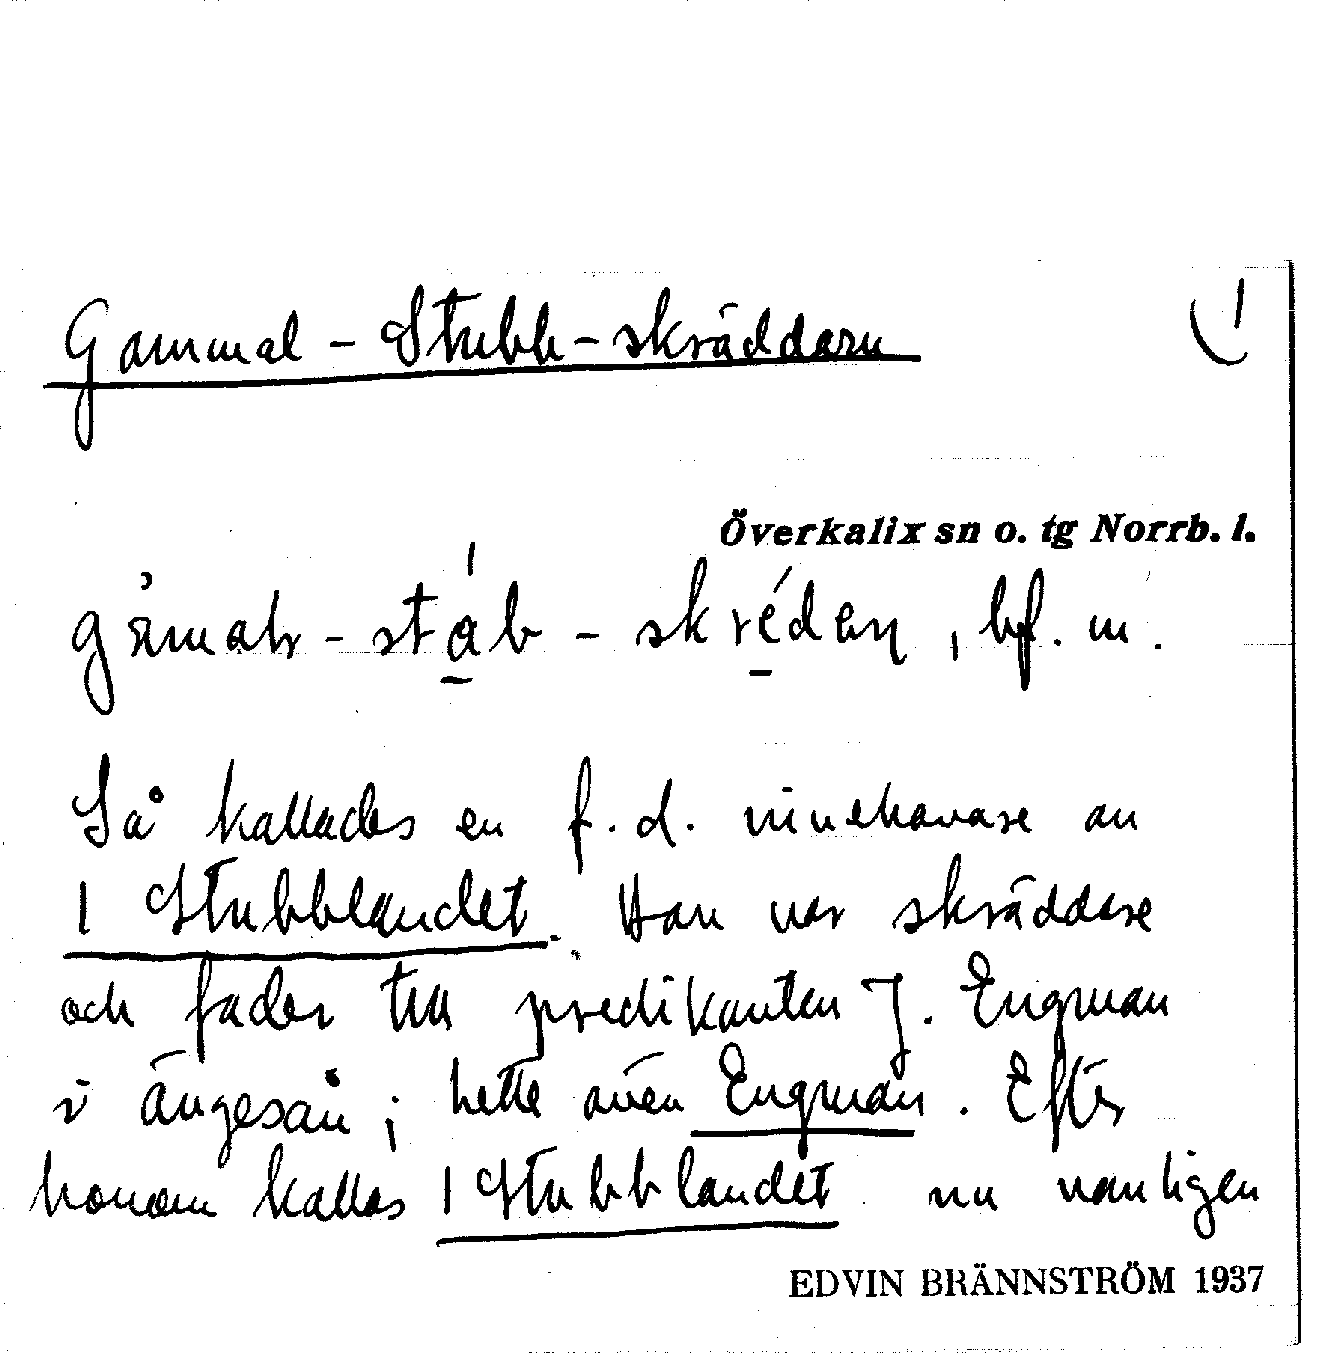 Gammal-Stubb-skräddarn
Överkalix sn o. tg Norrb. l.
, bf. m.
Så kallades en f.d. innehavare av
1 Stubblandet. Han var skräddare
och fader till predikanten J. Engman
i Ängesån; hette även Engman. Efter
honom kallas 1 Stubblandet nu vanligen
EDVIN BRÄNNSTRÖM 1937